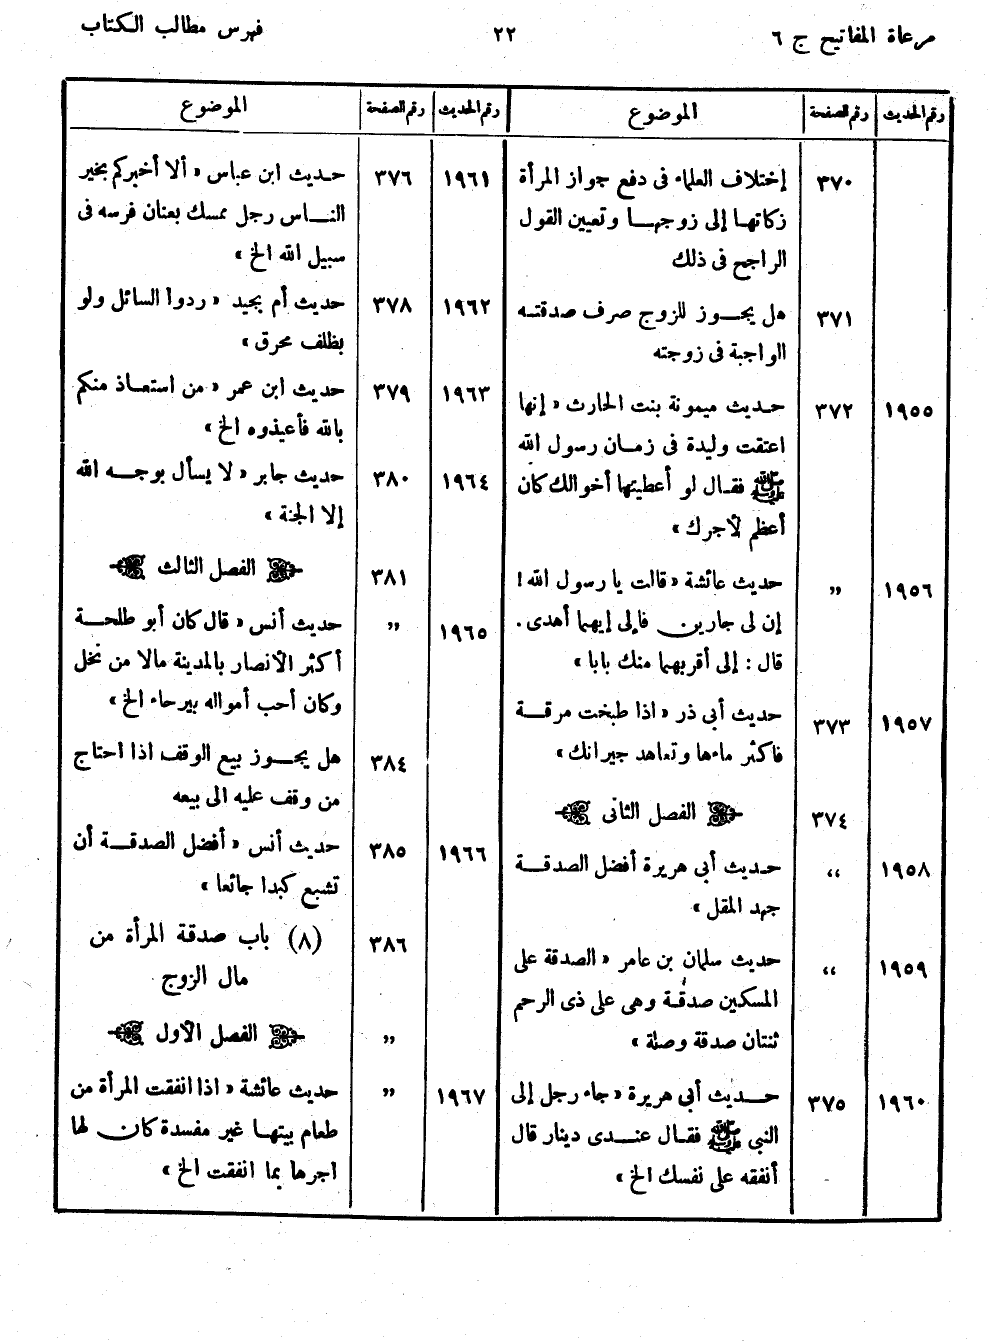 مرعاة المفاتيح ج ٦ ٢٢ فهرس مطالب الكتاب
رقم الحديث رقم الصفحة الموضوع
٣٧٠ إختلاف العلماء فى دفع جواز المرأة
زكاتها إلى زوجها وتعيين القول
الراجح فى ذلك
٣٧١ هل يجوز للزوج صرف صدقته
الواجبة فى زوجته
١٩٥٥ ٣٧٢ حديث ميمونة بنت الحارث « إنها
اعتقت وليدة فى زمان رسول الله
ﷺ فقال لو أعطيتها أخوالك كان
أعظم لأجرك »
١٩٥٦ ,, حديث عائشة « قالت يا رسول الله !
إن لى جارين فإلى إيهما أهدى .
قال : إلى أقربهما منك بابا »
١٩٥٧ ٣٧٣ حديث أبى ذر « اذا طبخت مرقة
فاكثر ماءها وتعاهد جيرانك »
٣٧٤ الفصل الثانى
١٩٥٨ ,, حديث أبى هريرة أفضل الصدقة
جهد المقل »
١٩٥٩ ,, حديث سلمان بن عامر « الصدقة على
المسكين صدقة وهى على ذى الرحم
ثنتان صدقة وصلة »
١٩٦٠ ٣٧٥ حديث أبى هريرة « جاء رجل إلى
النبى ﷺ فقال عندى دينار قال
أنفقه على نفسك الخ »
رقم الحديث رقم الصفحة الموضوع
١٩٦١ ٣٧٦ حديث ابن عباس « ألا أخبركم بخير
الناس رجل ممسك بعنان فرسه فى
سبيل الله الخ »
١٩٦٢ ٣٧٨ حديث أم بجيد « ردوا السائل ولو
بظلف محرق »
١٩٦٣ ٣٧٩ حديث ابن عمر « من استعاذ منكم
بالله فأعيذوه الخ »
١٩٦٤ ٣٨٠ حديث جابر « لا يسأل بوجه الله
إلا الجنة »
٣٨١ الفصل الثالث
١٩٦٥ ,, حديث أنس « قال كان أبو طلحة
أكثر الأنصار بالمدينة مالا من نخل
وكان أحب أمواله بيرحاء الخ »
٣٨٤ هل يجوز بيع الوقف اذا احتاج
من وقف عليه الى بيعه
١٩٦٦ ٣٨٥ حديث أنس « أفضل الصدقة أن
تشبع كبدا جائعا »
٣٨٦ (٨) باب صدقة المرأة من
مال الزوج
,, الفصل الأول
١٩٦٧ ,, حديث عائشة « اذا انفقت المرأة من
طعام بيتها غير مفسدة كان لها
اجرها بما انفقت الخ »